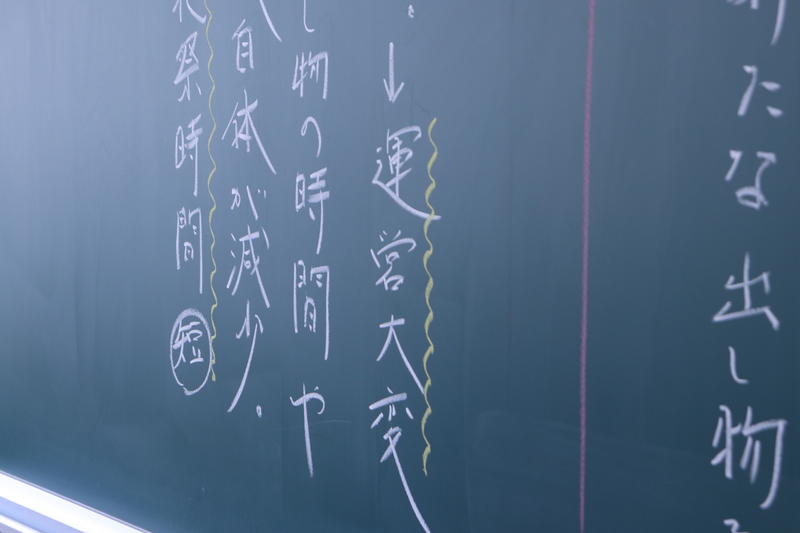 たな出し物
。↓運営大変
し物の時間や
自体が減少。
祭時間㊗短